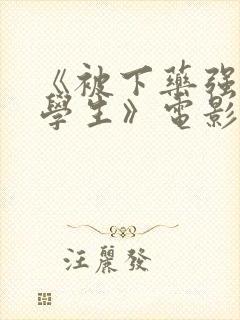 《被下藥强
學生》電影
汪麗發